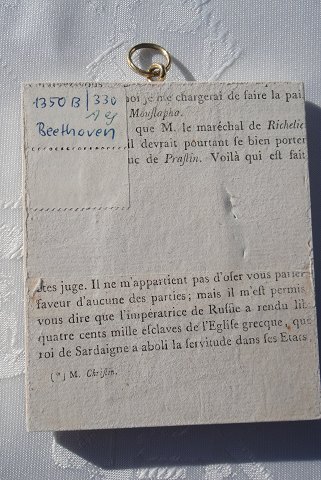 1350 B | 330
Beethoven
noi je me chargerai de faire la pai
Mouſtapha.
que M. le maréchal de Richelie
il devrait pourtant ſe bien porter
uc de Praſlin. Voilà qui eſt fait
êtes juge. Il ne m'appartient pas d'oſer vous parler
faveur d'aucune des parties; mais il m'eſt permis
vous dire que l'impératrice de Ruſſie a rendu lib
quatre cents mille eſclaves de l'Egliſe grecque, que
roi de Sardaigne a aboli la ſervitude dans ſes Etats
(*) M. Chriſtin.